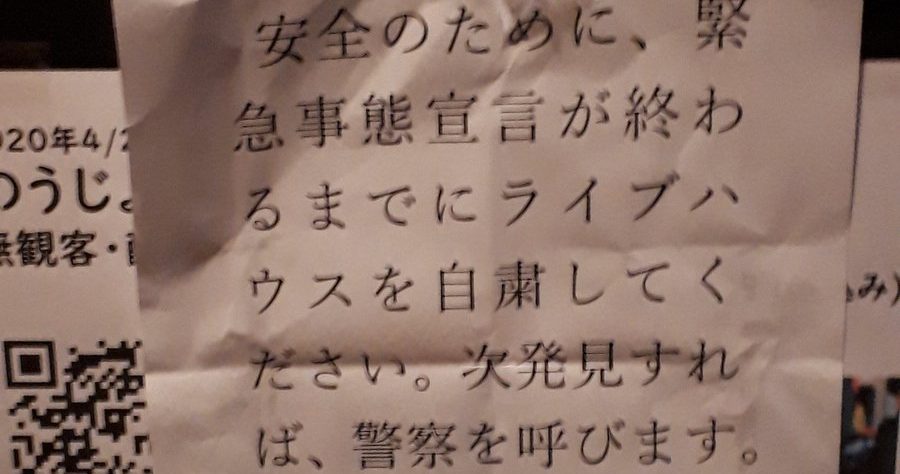 安全のために、緊
急事態宣言が終わ
るまでにライブハ
ウスを自粛してく
ださい。次発見すれ
ば、警察を呼びます。
020年4/2
のうじょ
無観客・
み)